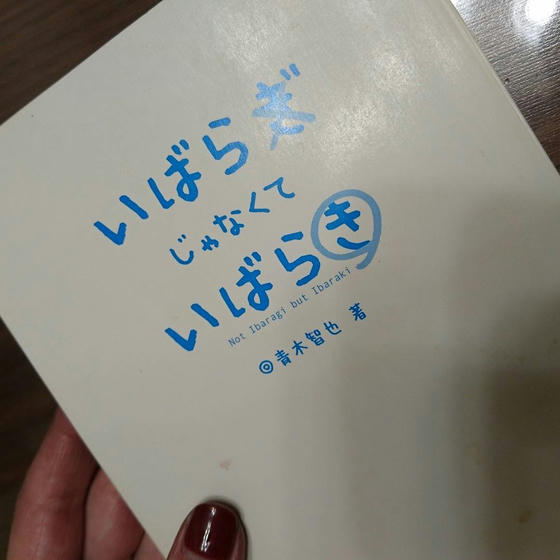 いばらぎ
じゃなくて
いばらき
Not Ibaragi but Ibaraki
◎青木智也 著